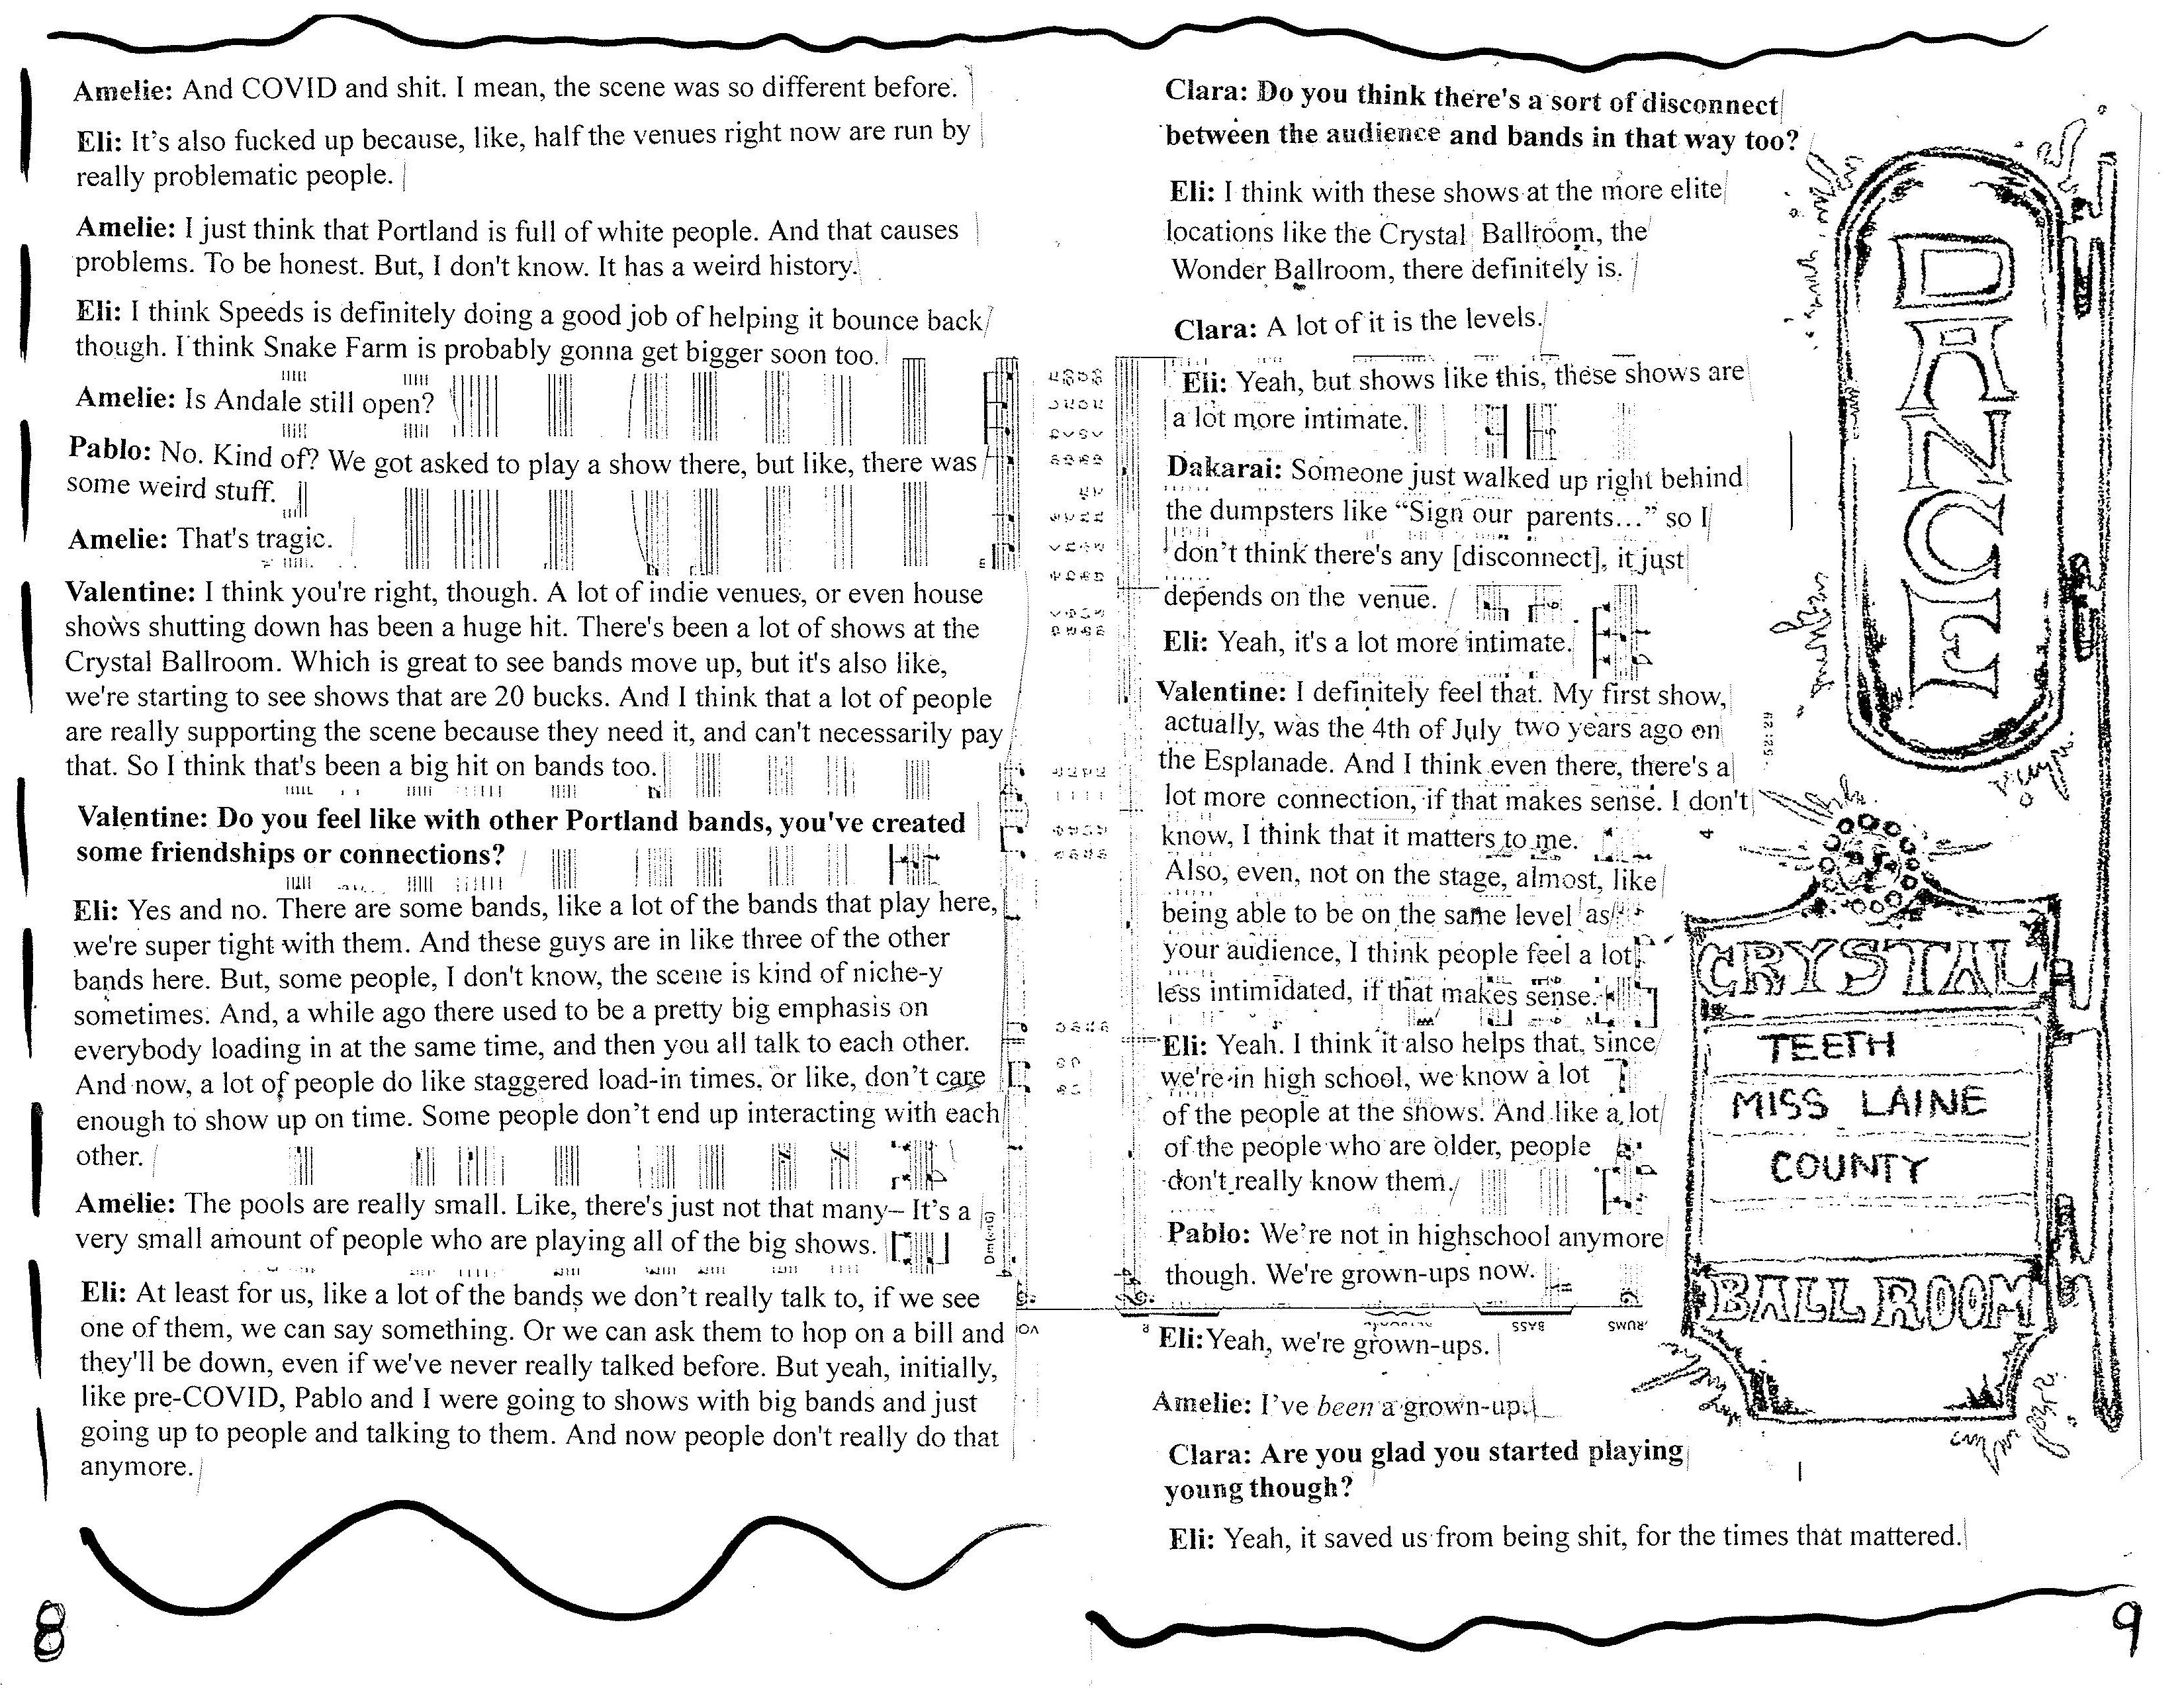 Amelie: And COVID and shit. I mean, the scene was so different before.
Eli: It's also fucked up because, like, half the venues right now are run by
really problematic people.
Amelie: I just think that Portland is full of white people. And that causes
problems. To be honest. But, I don't know. It has a weird history.
Eli: I think Speeds is definitely doing a good job of helping it bounce back
though. I think Snake Farm is probably gonna get bigger soon too.
Amelie: Is Andale still open?
Pablo: No. Kind of? We got asked to play a show there, but like, there was
some weird stuff.
Amelie: That's tragic.
Valentine: I think you're right, though. A lot of indie venues, or even house
shows shutting down has been a huge hit. There's been a lot of shows at the
Crystal Ballroom. Which is great to see bands move up, but it's also like,
we're starting to see shows that are 20 bucks. And I think that a lot of people
are really supporting the scene because they need it, and can't necessarily pay
that. So I think that's been a big hit on bands too.
Valentine: Do you feel like with other Portland bands, you've created
some friendships or connections?
Eli: Yes and no. There are some bands, like a lot of the bands that play here,
we're super tight with them. And these guys are in like three of the other
bands here. But, some people, I don't know, the scene is kind of niche-y
sometimes. And, a while ago there used to be a pretty big emphasis on
everybody loading in at the same time, and then you all talk to each other.
And now, a lot of people do like staggered load-in times, or like, don't care
enough to show up on time. Some people don't end up interacting with each
other.
Amelie: The pools are really small. Like, there's just not that many– It's a
very small amount of people who are playing all of the big shows.
Eli: At least for us, like a lot of the bands we don't really talk to, if we see
one of them, we can say something. Or we can ask them to hop on a bill and
they'll be down, even if we've never really talked before. But yeah, initially,
like pre-COVID, Pablo and I were going to shows with big bands and just
going up to people and talking to them. And now people don't really do that
anymore.
8
Clara: Do you think there's a sort of disconnect
between the audience and bands in that way too?
Eli: I think with these shows at the more elite
locations like the Crystal Ballroom, the
Wonder Ballroom, there definitely is.
Clara: A lot of it is the levels.
Eli: Yeah, but shows like this, these shows are
a lot more intimate.
Dakarai: Someone just walked up right behind
the dumpsters like “Sign our parents...” so I
don't think there's any [disconnect], it just
depends on the venue.
Eli: Yeah, it's a lot more intimate.
Valentine: I definitely feel that. My first show,
actually, was the 4th of July two years ago on
the Esplanade. And I think even there, there's a
lot more connection, if that makes sense. I don't
know, I think that it matters to me.
Also, even, not on the stage, almost, like
being able to be on the same level as
your audience, I think people feel a lot
less intimidated, if that makes sense.
Eli: Yeah. I think it also helps that, since
we're in high school, we know a lot
of the people at the shows. And like a lot
of the people who are older, people
don't really know them.
Pablo: We're not in highschool anymore
though. We're grown-ups now.
BASS
Eli: Yeah, we're grown-ups.
Amelie: I've been a grown-up.
Clara: Are you glad you started playing
young though?
Eli: Yeah, it saved us from being shit, for the times that mattered.
DANCE
CRYSTAL
TEETH
MISS LAINE
COUNTY
BALLROOM
9